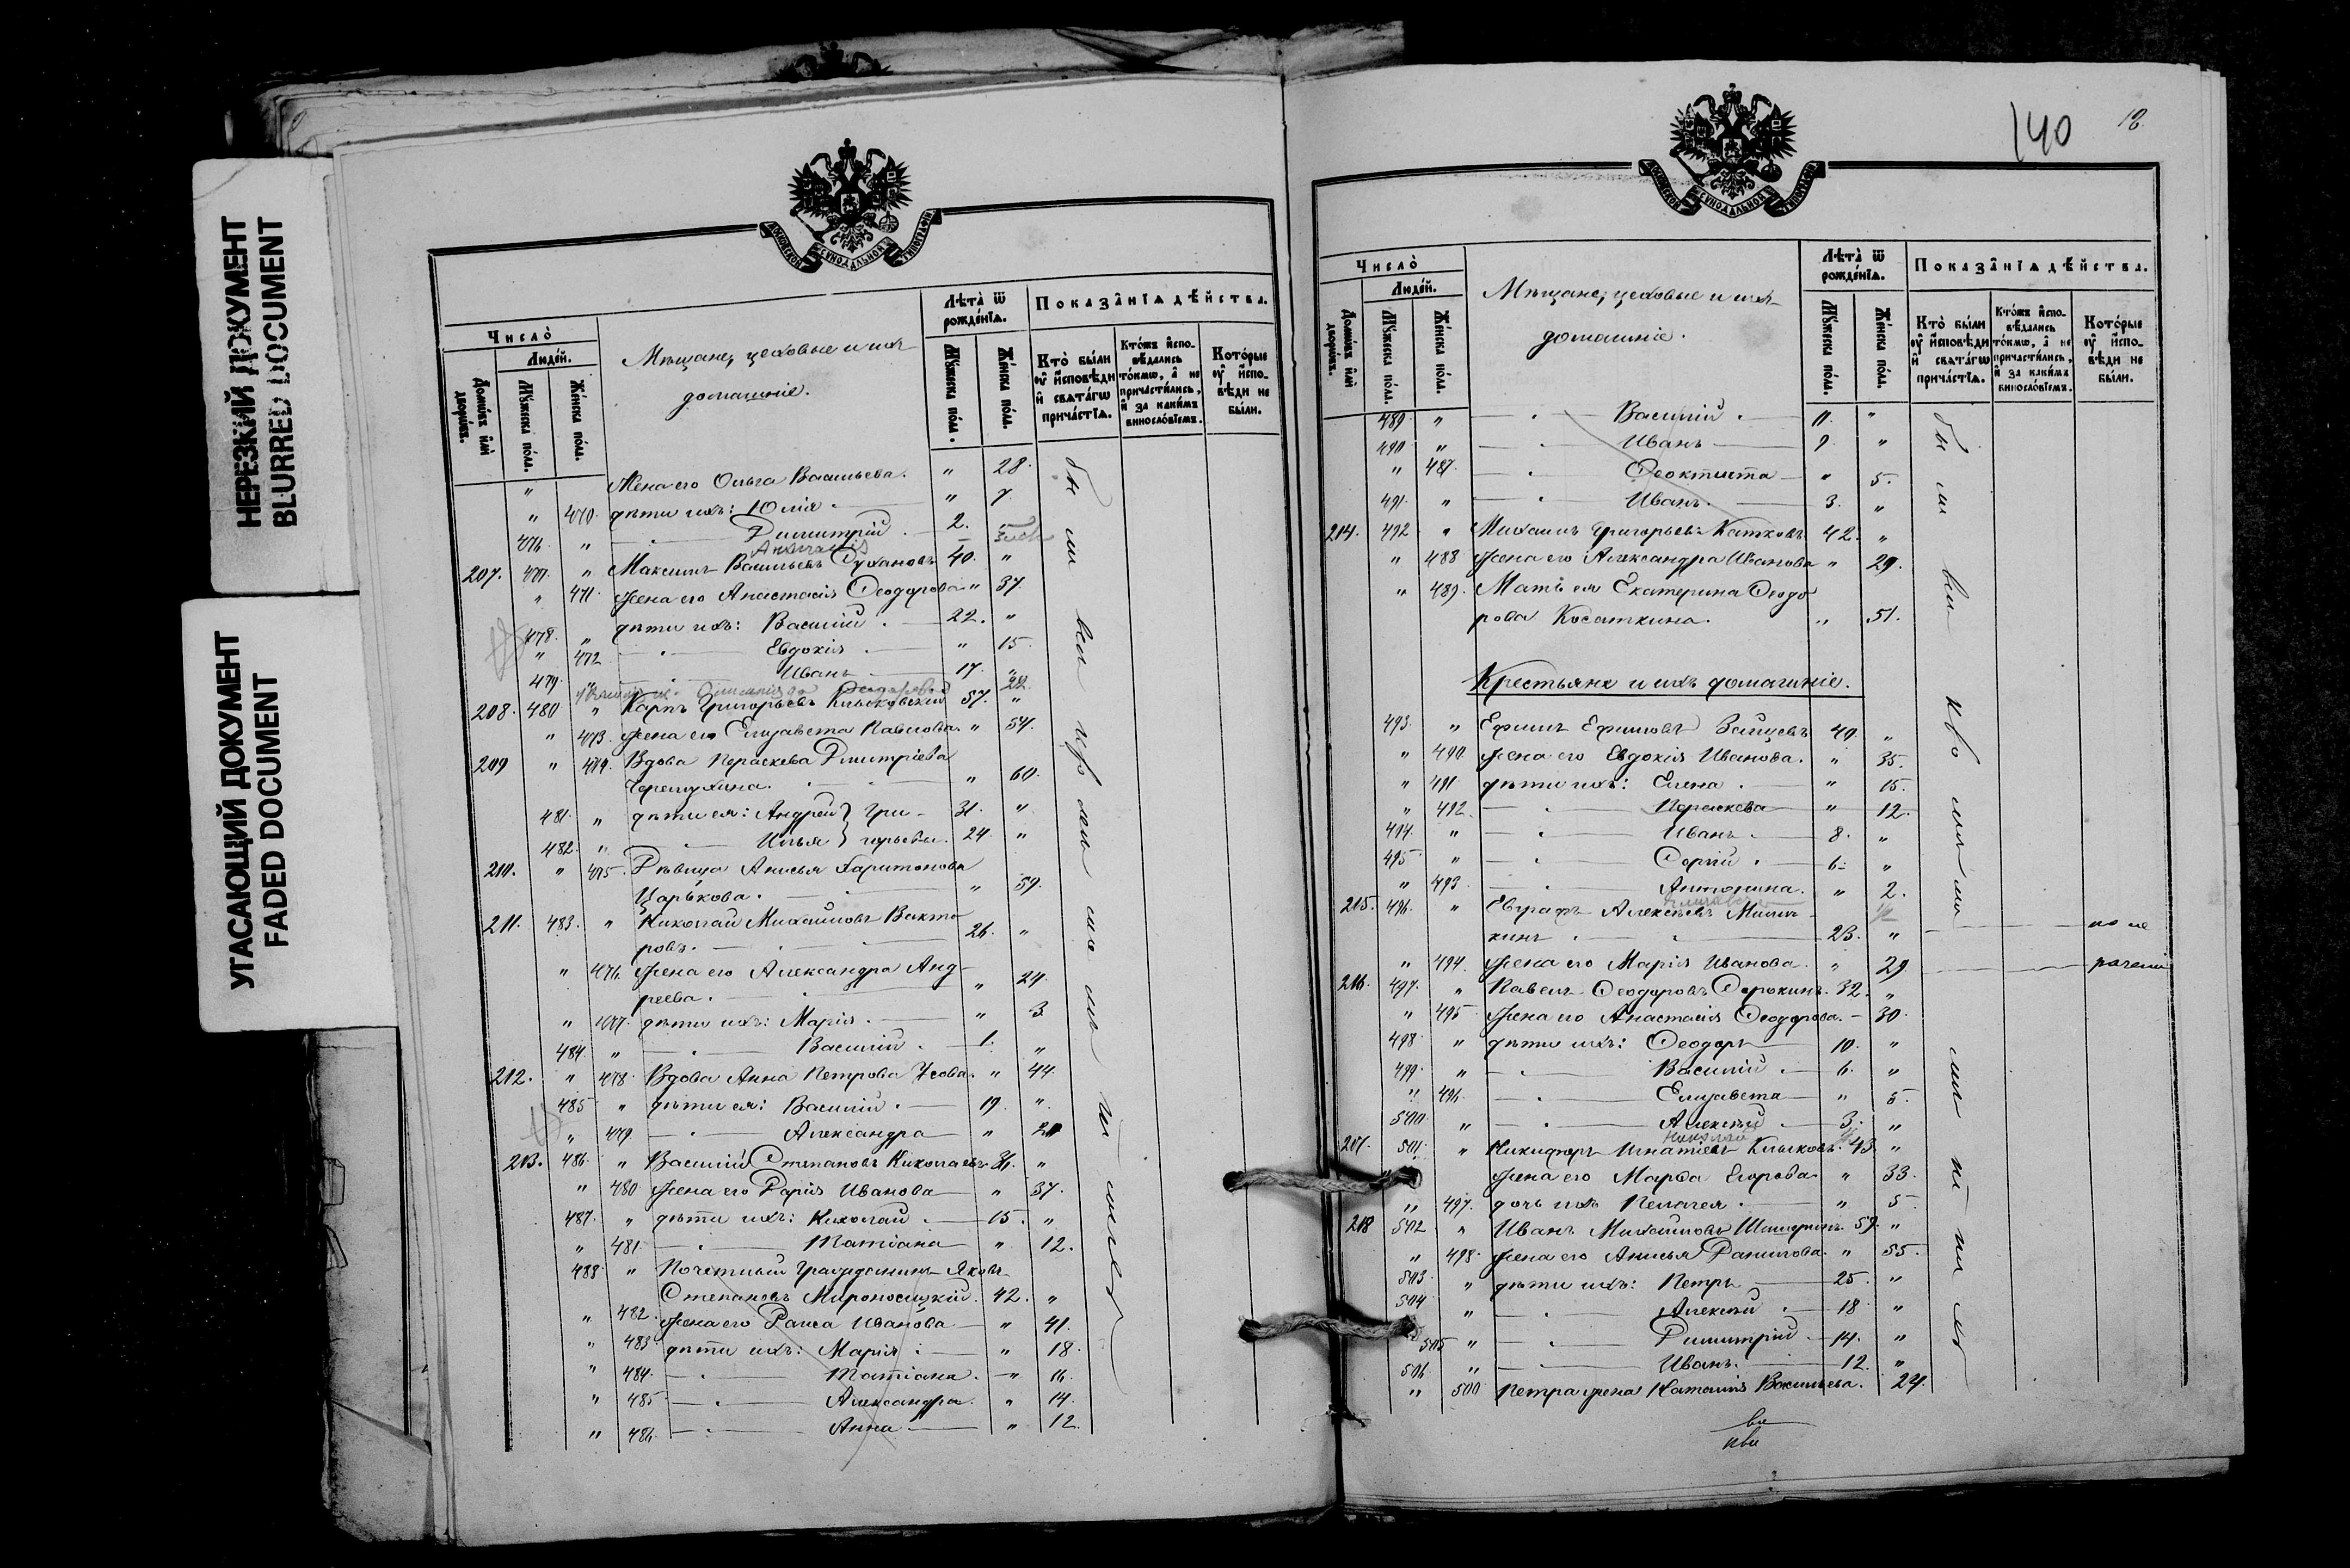 НЕРЕЗКИЙ ДОКУМЕНТ
BLURRED DOCUMENT
УГАСАЮЩИЙ ДОКУМЕНТ
FADED DOCUMENT
Число̀
Людей.
Домовъ или дворовъ.
Мужеска пола.
Женска пола.
Мѣщане, цеховые и ихъ
домашніе.
Лѣта ѿ рожденїѧ.
Мужеска пола.
Женска пола.
Показанїѧ дѣйства.
Кто были ѹ исповѣди и свѧтагѡ причастїѧ.
Ктожъ исповѣдались токмѡ, а не причастились, и за какимъ винословїемъ.
Которые ѹ исповѣди не были.
" Жена его Ольга Васильева. " 28.
" 470. дѣти ихъ: Юлія " 7.
476. " Димитрій 2.
207. 477. " Максимъ Васильевъ Сухановъ 40. "
" 471. Жена его Анастасія Ѳеодорова " 37.
478. " дѣти ихъ: Василій 22. "
" 472 Евдокія " 15.
479. " Иванъ 17. "
208. 480 " Карпъ Григорьевъ 57. "
" 473. Жена его Елизавета Павлова " 54.
209 " 474. Вдова Параскева Димитріева
Черемухина. " 60.
481. " дѣти ея: Андрей } Гри- 31. "
482. " Илья } горьевы. 24. "
210. " 475. Дѣвица Анисья Харитонова
Царькова. " 59.
211. 483. " Николай Михайловъ Викто-
ровъ. 26. "
" 476. Жена его Александра Анд-
реева. " 24.
" 477. дѣти ихъ: Марія. " 3
484. " Василій 1. "
212. " 478. Вдова Анна Петрова Усова. " 44.
485 " дѣти ея: Василій. 19. "
" 479. Александра " 20
213. 486. " Василій Степановъ Николаевъ 36. "
" 480 Жена его Дарія Иванова " 37.
487. " дѣти ихъ: Николай 15. "
" 481 Татіана " 12.
488 " Почетный Гражданинъ Яковъ
Степановъ Мироносицкій. 42. "
" 482. Жена его Раиса Иванова " 41.
" 483 дѣти ихъ: Марія " 18.
" 484. Татіана. " 16.
" 485 Александра. " 14.
" 486. Анна " 12.
140 12.
Число̀
Людей.
Домовъ или дворовъ.
Мужеска пола.
Женска пола.
Мѣщане, цеховые и ихъ
домашніе.
Лѣта ѿ рожденїѧ.
Мужеска пола.
Женска пола.
Показанїѧ дѣйства.
Кто были ѹ исповѣди и свѧтагѡ причастїѧ.
Ктожъ исповѣдались токмѡ, а не причастились, и за какимъ винословїемъ.
Которые ѹ исповѣди не были.
489. " Василій 11. "
490 " Иванъ 9. "
" 487. Ѳеоктиста " 5.
491. " Иванъ. 3. "
214. 492 " Михаилъ Григорьевъ Катковъ 42. "
" 488 Жена его Александра Иванова " 29.
" 489. Мать ея Екатерина Ѳеодо
рова Косаткина. " 51.
Крестьяне и ихъ домашніе.
493. " Ефимъ Ефимовъ Зайцевъ 40. "
" 490 Жена его Евдокія Иванова. " 35.
" 491 дѣти ихъ: Елена " 15.
" 492 Параскева " 12.
494. " Иванъ 8. "
495 " Сергій 6. "
" 493 Антонина. " 2.
215. 496. " Евграфъ Алексѣевъ
кинъ 23. " по не
" 494. Жена его Марія Иванова. " 29 раченію
216. 497. " Павелъ Ѳеодоровъ Сорокинъ. 32. "
" 495 Жена его Анастасія Ѳеодорова. 30.
498 " дѣти ихъ: Ѳеодоръ 10. "
499. " Василій 6. "
" 496. Елизавета " 5.
500 " Алексѣй 3. "
Николай
217. 501. " Никифоръ Игнатіевъ Клыковъ. 43. "
Жена его Марѳа Егорова " 33.
" 497. дочь ихъ Пелагея. " 5
218 502 " Иванъ Михайловъ 59. "
" 498. Жена его Анисья Данилова. " 55.
503. " дѣти ихъ: Петръ 25. "
504 " Алексѣй 18 "
505 " Димитрій 14. "
506 " Иванъ. 12. "
" 500 Петра жена Наталія Васильева. 24.